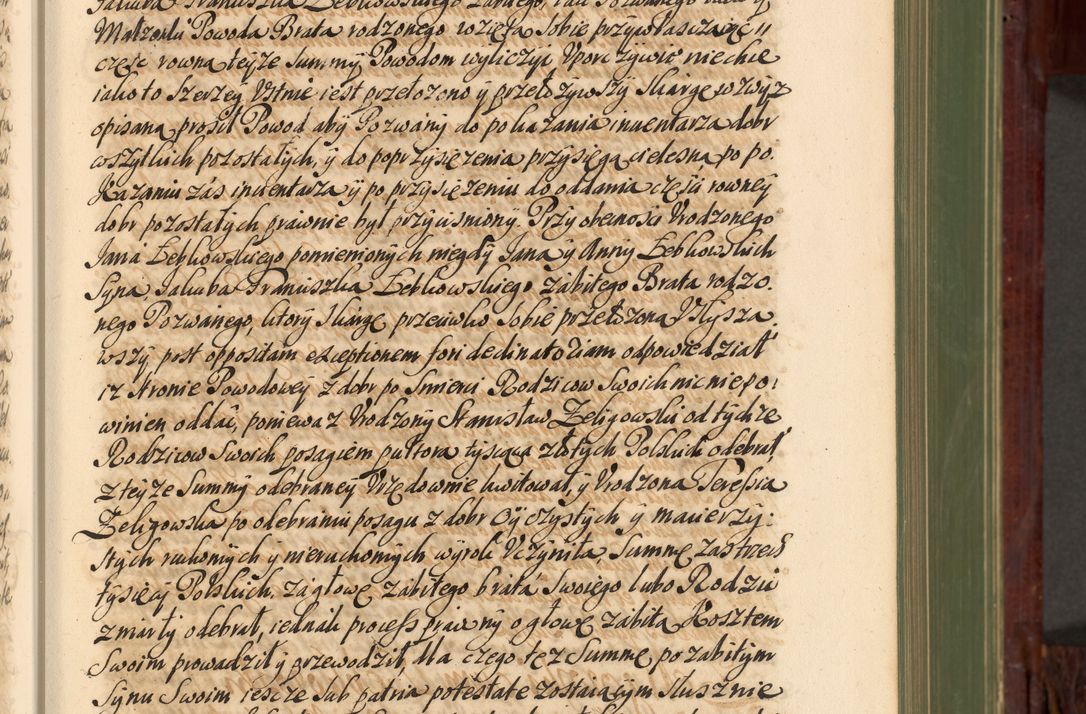 Małżonki Powoda Brata rodzonego wzięta sobie przywłaszczaiąc y
częśc rowną teyże Summy Powodom wyliczyc Uporczywie niechce
iako to Szerzey Ustnie iest przełozono y przełozywszy Skargę wzwyz
opisaną prosił Powod aby Pozwany do pokazania inwentarza dobr
wszytkich pozostałych, y do poprzysięzenia przysięgą cielesną po po.
kazaniu zas inwentarza y po przysięzeniu do oddania częsci rowney
dobr pozostałych prawnie był przycisniony. Przy obecnosci Urodzonego
Jana Łebkowskiego pomienionych niegdy Jana y Anny Łebkowskich
Syna, Jakuba Franciszka Łebkowskiego zabitego Brata rodzo.
nego Pozwanego, ktory Skargę przeciwko sobie przełozoną Usłysza
wszy, post oppositam exceptionem fori declinatoriam odpowiedział
iz stronie Powodowey z dobr po Smierci Rodzicow Swoich nic nie po:
winien oddać, poniewaz Urodzony Stanisław Zeligowski od tychze
Rodzicow Swoich posagiem pułtora tysiąca złotych Polskich odebrał
z teyze Summy odebraney Urzędownie kwitował, y Urodzona Teressia
Zeligowska po odebraniu posagu z dobr Oyczystych y macierzy:
stych ruchomych y nieruchomych wyrok Uczyniła, Summę zas trzech
tysięcy Polskich za głowę zabitego brata Swoiego lubo Rodzic
zmarły odebrał, iednak process prawny o głowę zabitą Kosztem
Swoim prowadził y przewodził, dla czego tez Summę po zabitym
Synu Swoim ieszcze sub patria potestate zostaiącym słusznie